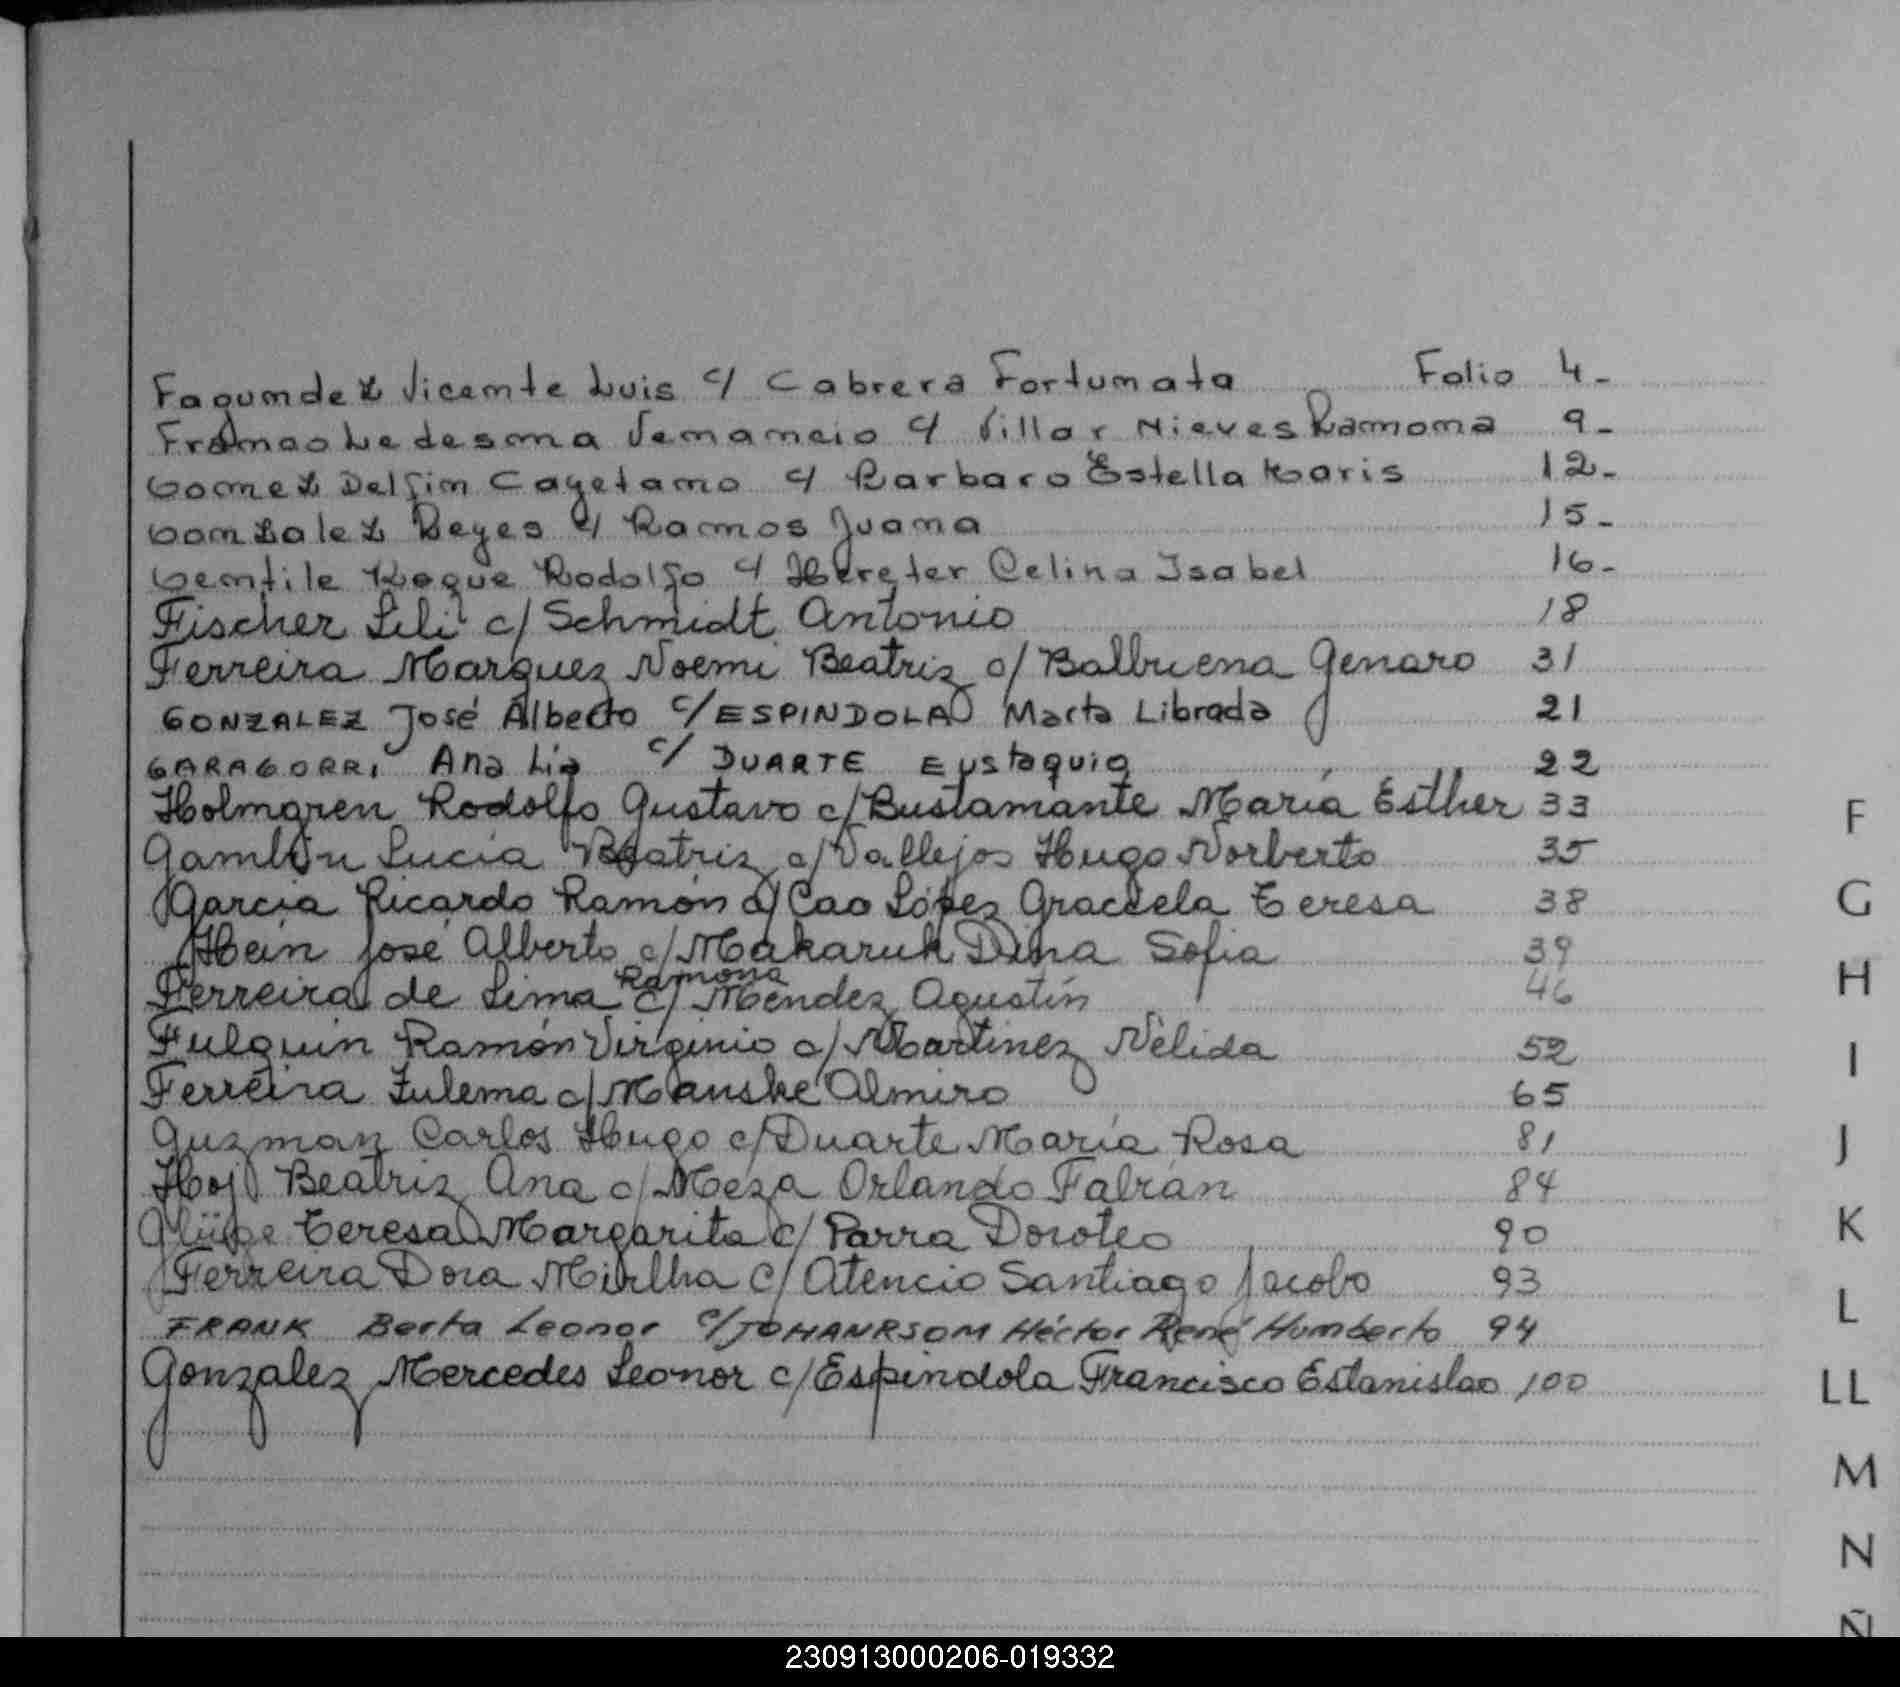 Fagundez Vicente Luis c/ Cabrera Fortunata Folio 4.-
Franco Ledesma Venancio c/ Villar Nieves Ramona 9.-
Gomez Delfin Cayetano c/ Barbaro Estella Maris 12.-
Gonzalez Reyes c/ Ramos Juana 15.-
Gentile Roque Rodolfo c/ Hereter Celina Isabel 16.-
Fischer Lili c/ Schmidt Antonio 18
Ferreira Marquez Noemi Beatriz c/ Balbuena Genaro 31
GONZALEZ José Alberto c/ ESPINDOLA Marta Librada 21
GARAGORRI Ana Lia c/ DUARTE Eustaquio 22
Holmgren Rodolfo Gustavo c/ Bustamante María Esther 33
Gamlin Lucia Beatriz c/ Vallejos Hugo Norberto 35
Garcia Ricardo Ramón c/ Cao López Graciela Teresa 38
Hein José Alberto c/ Makaruk Dina Sofia 39
Ferreira de Lima Ramona c/ Mendez Agustín 46
Fulguin Ramón Virginio c/ Martinez Nélida 52
Ferreira Zulema c/ Manske Almiro 65
Guzman Carlos Hugo c/ Duarte María Rosa 81
Hoj Beatriz Ana c/ Meza Orlando Fabián 84
Glüge Teresa Margarita c/ Parra Doroteo 90
Ferreira Dora Mirtha c/ Atencio Santiago Jacobo 93
FRANK Berta Leonor c/ JOHANRSOM Héctor René Humberto 94
Gonzalez Mercedes Leonor c/ Espindola Francisco Estanislao 100
F
G
H
I
J
K
L
LL
M
N
Ñ
230913000206-019332